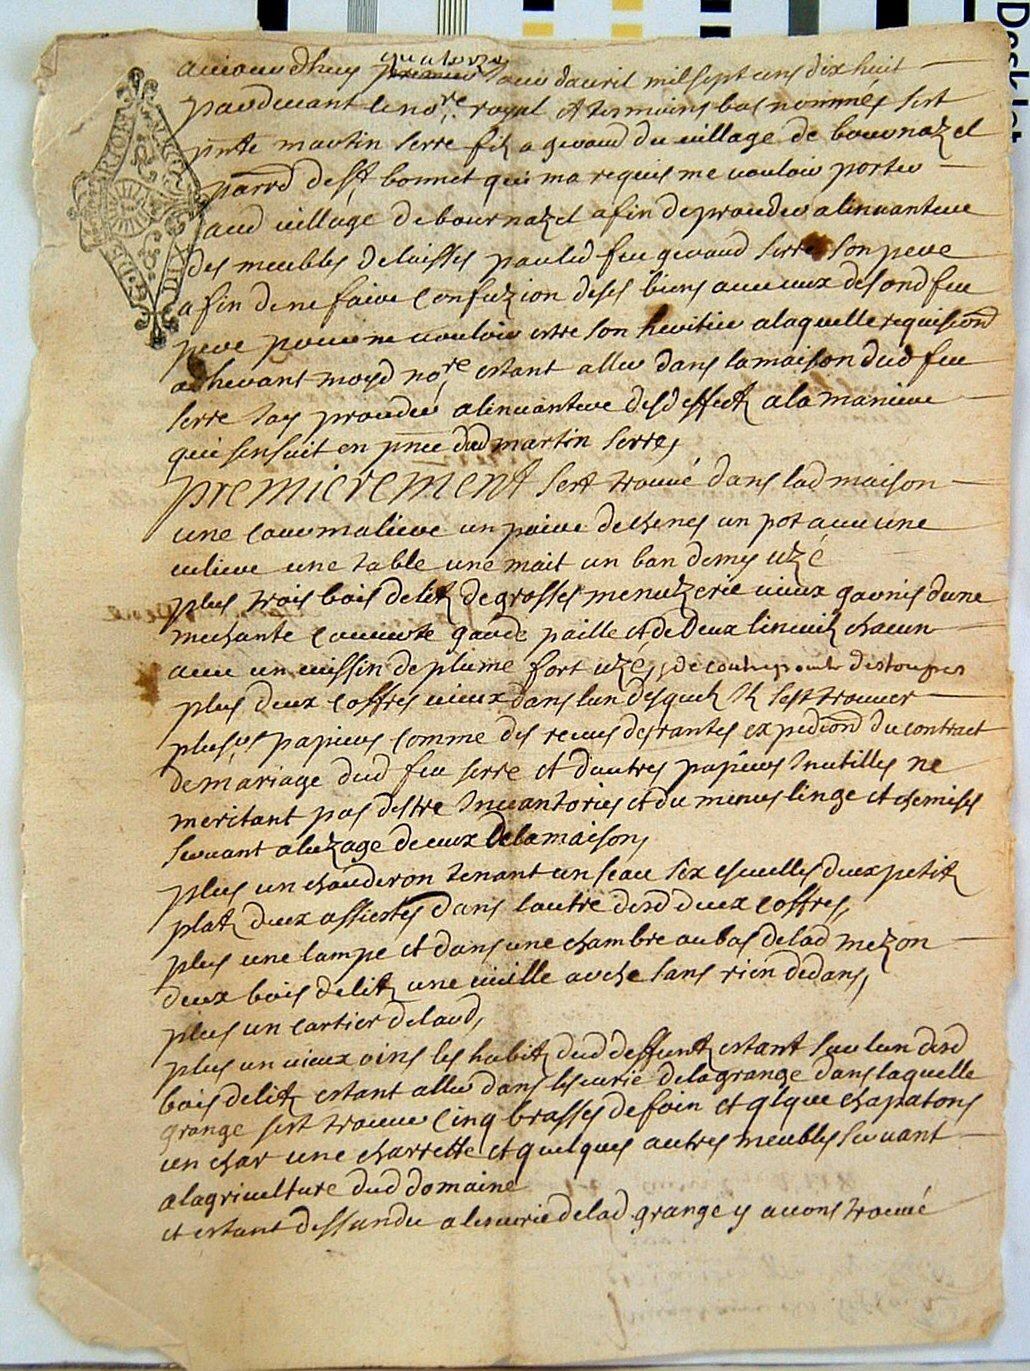 aujourdhuy quatorze jour davril mil sept cens dix huit
pardevant le nore royal et tesmoins bas nommés sest
pnte martin serre fils a geraud du village de bournazel
parred de st bonnet qui ma requis me vouloir porter
aud village de bournazel afin de proceder alinvanteue
des meubles delaissés par led feu geraud serre son pere
afin de ne faire confuzion de ses biens avec ceux de sond feu
pere pour ne vouloir estre son heritier a laquelle requisiond
adherant moyd nore estant aller dans la maison dud feu
serre jay proceder alinvanteue desd effectz a la maniere
qui sensuit en pnce dud martin serre,
premierement sest trouvé dans lad maison
une caumalieue un paire de chenes un pot avec une
culiere une table une mait un ban demy uzé
plus trois bois de litz de grosses menuzerie vieux garnis dune
mechante couuerte garde paille et de deux linceuls chacun
avec un cuissin de plume fort uzé, de coutre pointe destoupes
plus deux coffres vieux dans lun desquels il sest trouver
plusrs papiers comme des receus de rantes expediond du contract
de mariage dud feu serre et dautres papiers inutilles ne
meritant pas destre invantories et du menus linge et chemises
servant a luzage de ceux de la maison,
plus un chauderon tenant un seau six escuelles deux petits
platz deux assiestes dans lautre desd deux coffres,
plus une lampe et dans une chambre au bas de lad mezon
deux bois de litz une vieille arche sans rien dedans,
plus un cartier de lard,
plus un vieux oins les habitz dud deffuntz estant sur lun desd
bois de litz estant aller dans lescurie de la grange dans laquelle
grange sest trouver cinq brasses de foin et qlque chapatons
un char une charrette et quelques autres meubles servant
a lagriculture dud domaine
et estant dessandu a lescurie de lad grange y avons trouvé